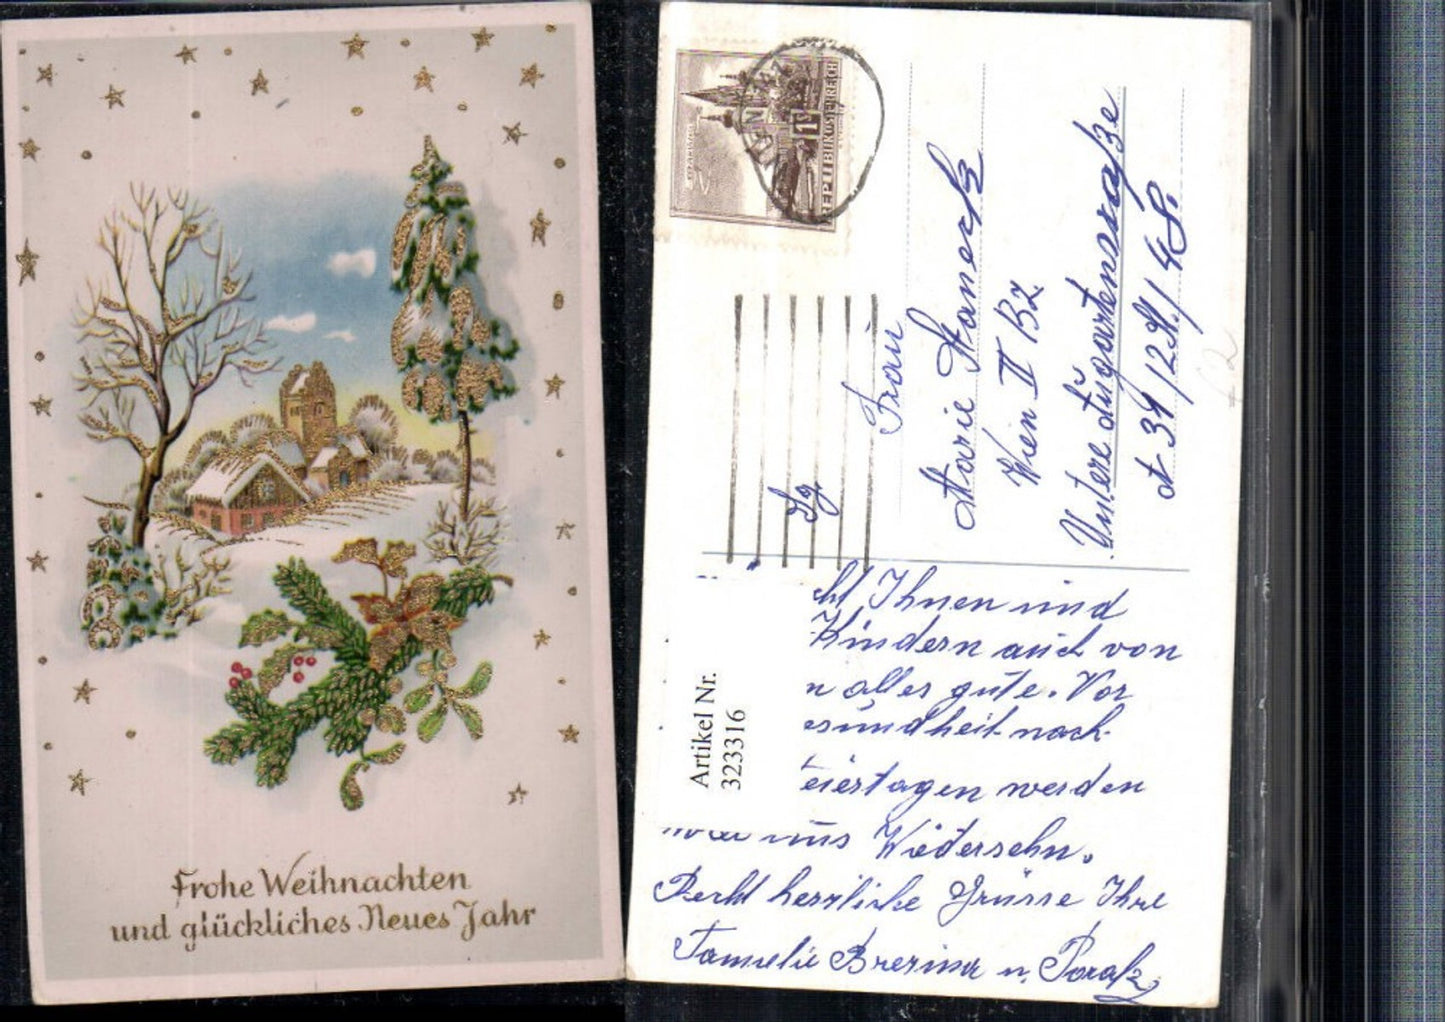 Frohe Weihnachten
und glückliches Neues Jahr
REPUBLIK ÖSTERREICH
1
Frau
Marie Staneck
Wien II Bz
Untere Augartenstraße
39/12
Artikel Nr.
323316
Ihnen und
Kindern auch von
n alles gute. Vor
esundheit nach
eiertagen werden
uns Wiedersehn.
Recht herzliche Grüsse Ihre
Familie Brezina u.